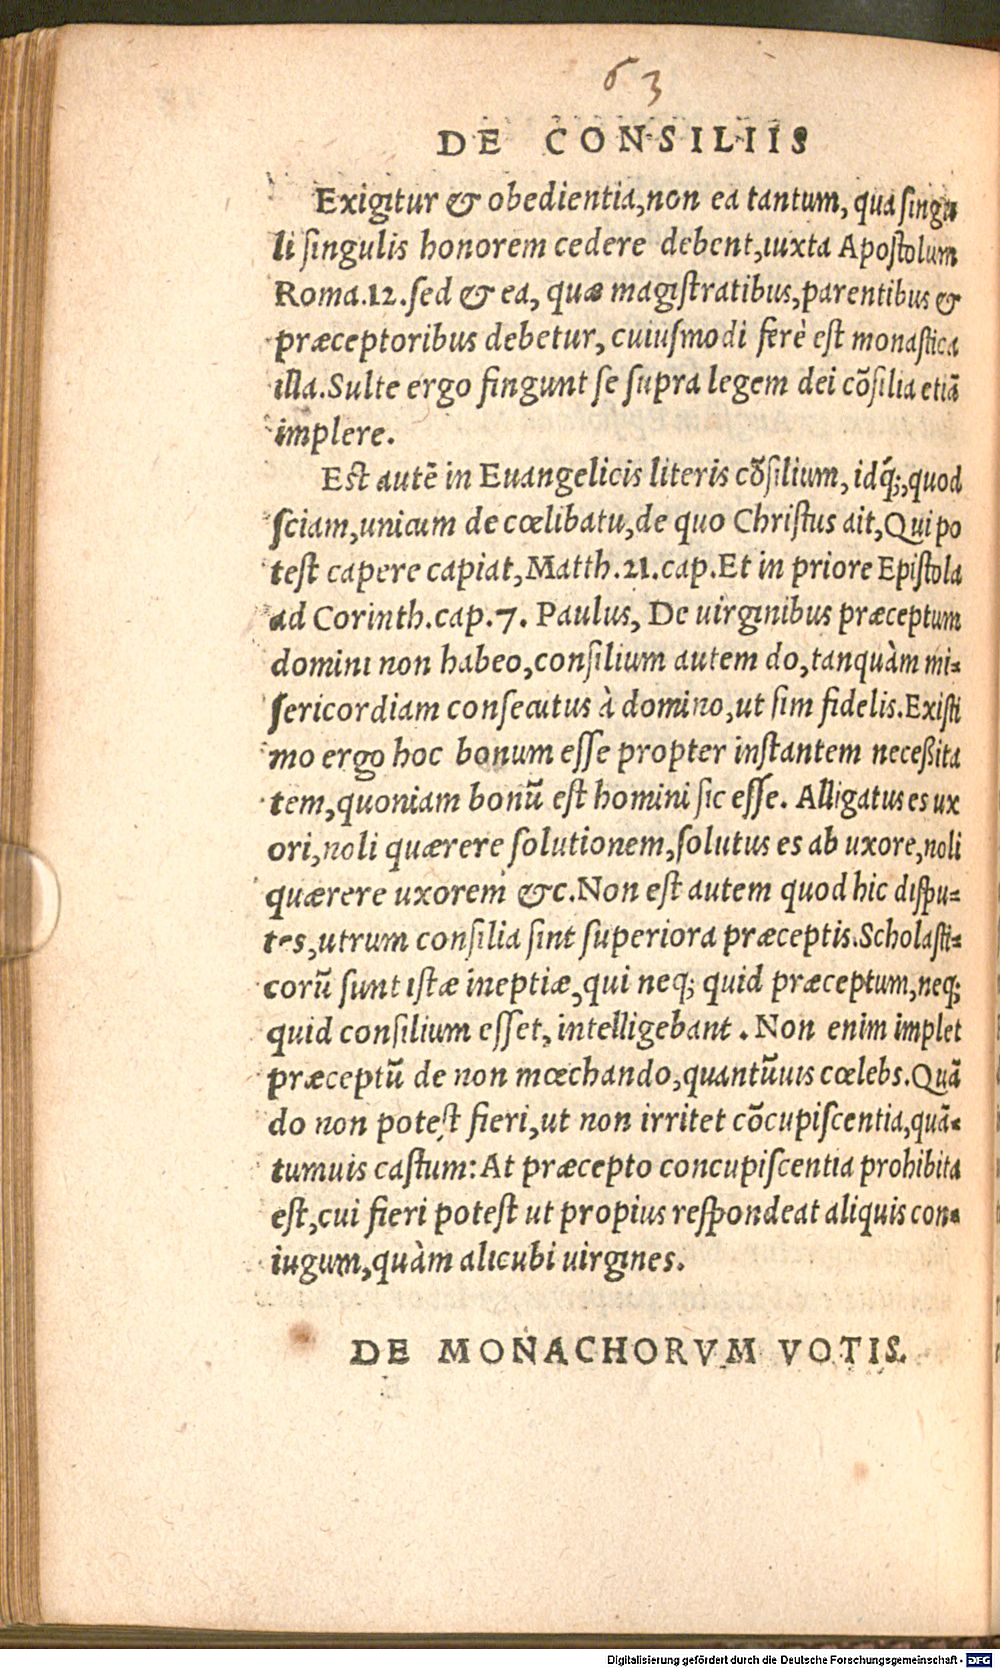 63
DE CONSILIIS
Exigitur & obedientia, non ea tantum, qua singu
li singulis honorem cedere debent, iuxta Apostolum
Roma.12. sed & ea, quæ magistratibus, parentibus &
præceptoribus debetur, cuiusmodi ferè est monastica
illa. Sulte ergo fingunt se supra legem dei cõsilia etiã
implere.
Est autẽ in Euangelicis literis cõsilium, idq́;, quod
sciam, unicum de cœlibatu, de quo Christus ait, Qui po
test capere capiat, Matth.21.cap. Et in priore Epistola
ad Corinth.cap.7. Paulus, De uirginibus præceptum
domini non habeo, consilium autem do, tanquàm mi-
sericordiam consecutus à domino, ut sim fidelis. Existi
mo ergo hoc bonum esse propter instantem neceßita
tem, quoniam bonũ est homini sic esse. Alligatus es ux
ori, noli quærere solutionem, solutus es ab uxore, noli
quærere uxorem &c. Non est autem quod hic dispu-
tes, utrum consilia sint superiora præceptis. Scholasti-
corũ sunt istæ ineptiæ, qui neq; quid præceptum, neq;
quid consilium esset, intelligebant. Non enim implet
præceptũ de non mœchando, quantũuis cœlebs. Quã
do non potest fieri, ut non irritet cõcupiscentia, quã-
tumuis castum: At præcepto concupiscentia prohibita
est, cui fieri potest ut propius respondeat aliquis con-
iugum, quàm alicubi uirgines.
DE MONACHORVM VOTIS.
Digitalisierung gefördert durch die Deutsche Forschungsgemeinschaft - DFG